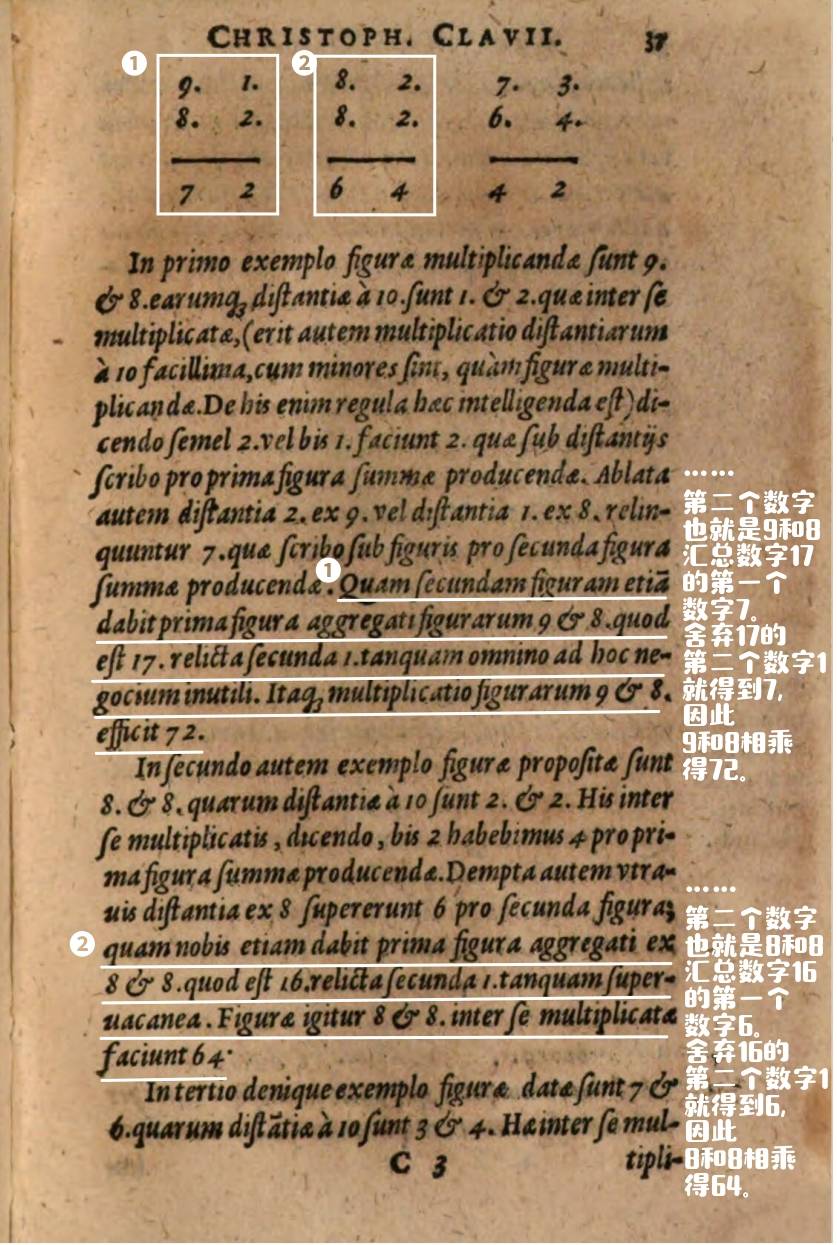 CHRISTOPH. CLAVII. 37
1 2
9. 1. 8. 2. 7. 3.
8. 2. 8. 2. 6. 4.
7 2 6 4 4 2
In primo exemplo figuræ multiplicandæ ſunt 9.
& 8. earumq́ʒ diſtantiæ à 10. ſunt 1. & 2. quæ inter ſe
multiplicatæ, (erit autem multiplicatio diſtantiarum
à 10 facillima, cum minores ſint, quàm figuræ multi-
plicandæ. De his enim regula hæc intelligenda eſt) di-
cendo ſemel 2. vel bis 1. faciunt 2. quæ ſub diſtantijs
ſcribo pro prima figura ſummæ producendæ. Ablata
autem diſtantia 2. ex 9. vel diſtantia 1. ex 8. relin-
quuntur 7. quæ ſcribo ſub figuris pro ſecunda figura
ſummæ producendæ. 1 Quam ſecundam figuram etiā
dabit prima figura aggregati figurarum 9 & 8. quod
eſt 17. relicta ſecunda 1. tanquam omnino ad hoc ne-
gocium inutili. Itaq́ʒ multiplicatio figurarum 9 & 8.
efficit 72.
In ſecundo autem exemplo figuræ propoſitæ ſunt
8. & 8. quarum diſtantiæ à 10 ſunt 2. & 2. His inter
ſe multiplicatis, dicendo, bis 2 habebimus 4 pro pri-
ma figura ſummæ producendæ. Dempta autem vtra-
uis diſtantia ex 8 ſupererunt 6 pro ſecunda figura;
2 quam nobis etiam dabit prima figura aggregati ex
8 & 8. quod eſt 16. relicta ſecunda 1. tanquam ſuper-
uacanea. Figuræ igitur 8 & 8. inter ſe multiplicatæ
faciunt 64.
In tertio denique exemplo figuræ datæ ſunt 7 &
6. quarum diſtātiæ à 10 ſunt 3 & 4. Hæ inter ſe mul-
C 3 tipli-
……
第二个数字
也就是9和8
汇总数字17
的第一个
数字7。
舍弃17的
第二个数字1
就得到7,
因此
9和8相乘
得72。
……
第二个数字
也就是8和8
汇总数字16
的第一个
数字6。
舍弃16的
第二个数字1
就得到6,
因此
8和8相乘
得64。